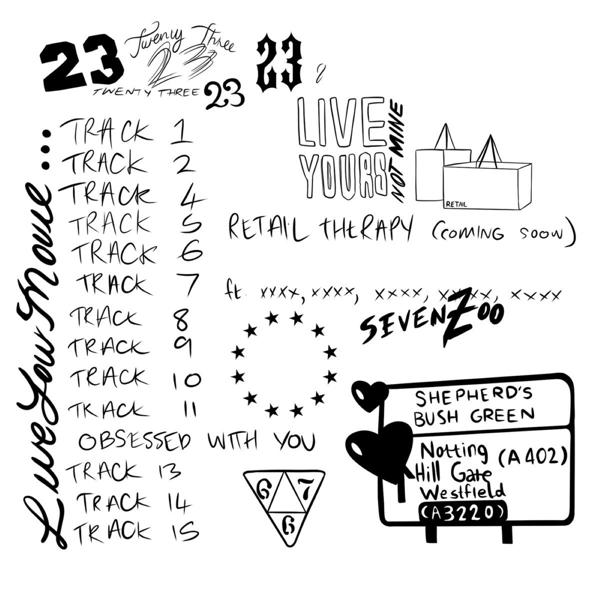 23
Twenty Three
23
TWENTY THREE
23
23
Live Your Movie...
TRACK 1
TRACK 2
TRACK 4
TRACK 5
TRACK 6
TRACK 7
TRACK 8
TRACK 9
TRACK 10
TRACK 11
OBSESSED WITH YOU
TRACK 13
TRACK 14
TRACK 15
LIVE
YOURS
NOT MINE
RETAIL
RETAIL THERAPY (COMING SOON)
ft. xxxx, xxxx, xxxx, xxxx, xxxx
SEVENZOO
6 7
6
SHEPHERD'S
BUSH GREEN
Notting
Hill Gate (A402)
Westfield
(A3220)